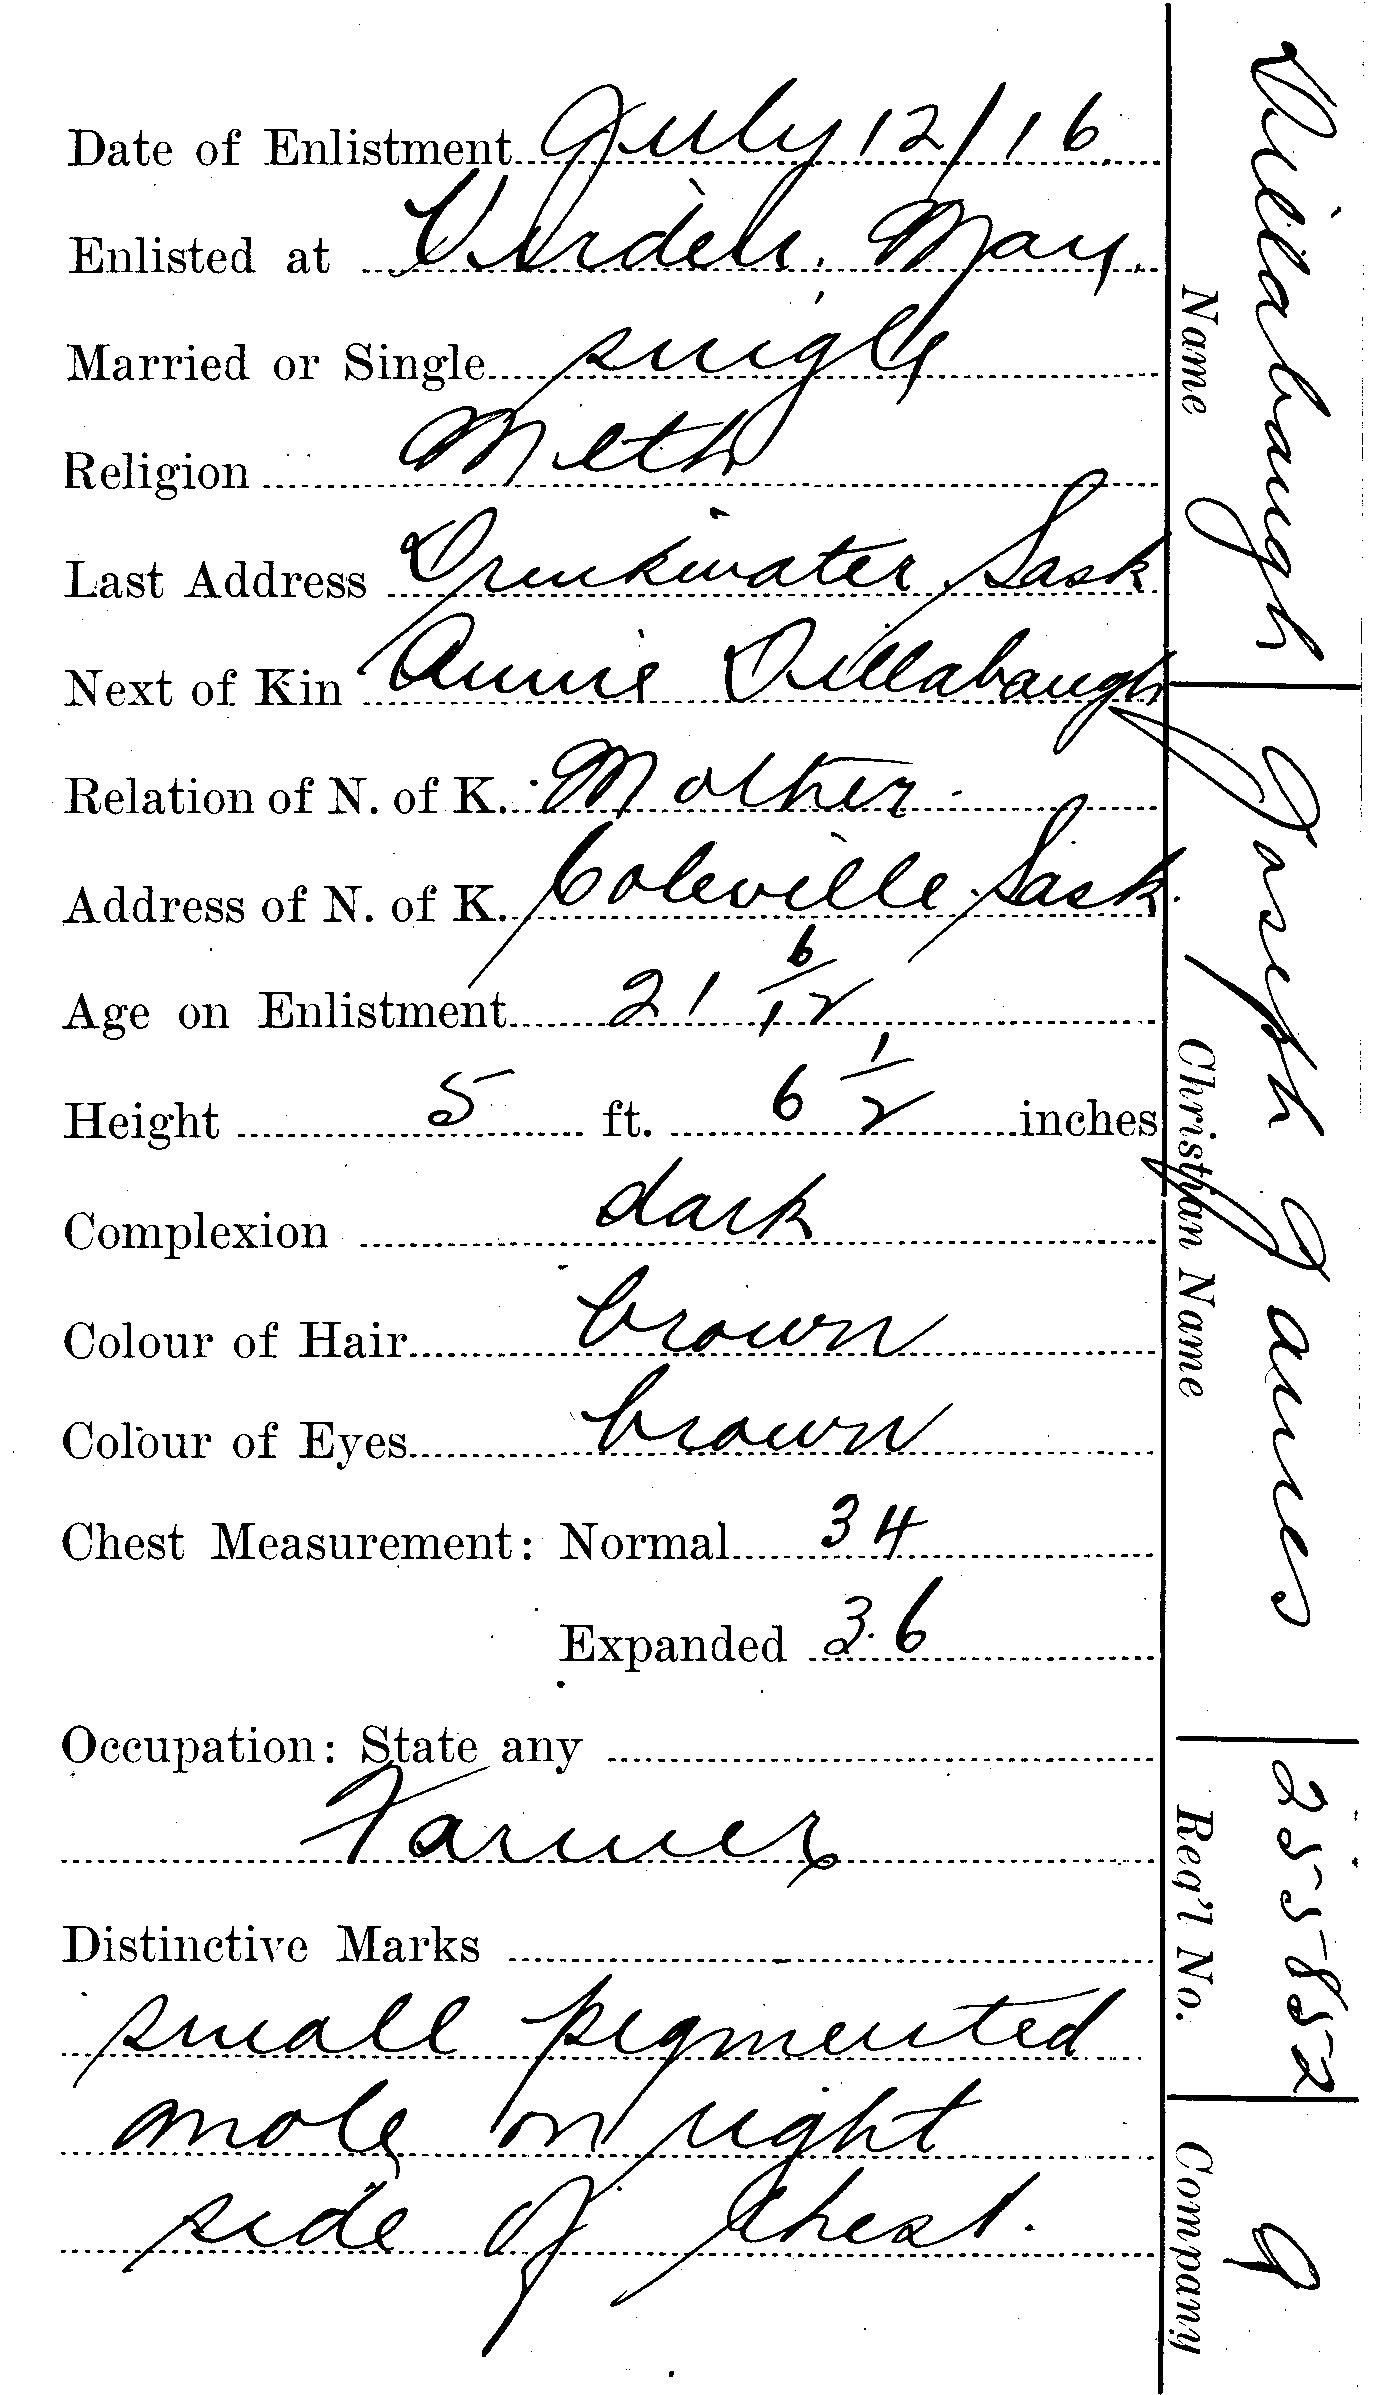 Date of Enlistment July 12/16
Enlisted at Virden. Man.
Married or Single single
Religion Meth
Last Address Drinkwater, Sask
Next of Kin Annie Dillabaugh
Relation of N. of K. Mother.
Address of N. of K. Coleville, Sask.
Age on Enlistment 21 6/12
Height 5 ft. 6 1/2 inches
Complexion dark
Colour of Hair brown
Colour of Eyes brown
Chest Measurement: Normal 34
Expanded 36
Occupation: State any
Farmer
Distinctive Marks
small pigmented
mole on right
side of chest.
Dillabaugh Joseph James 255852
Name Christian Name Reg'l No. Company